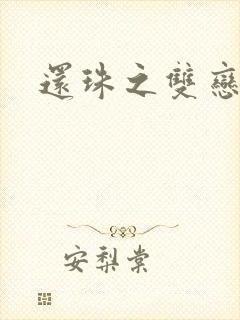 還珠之雙戀
安梨棠